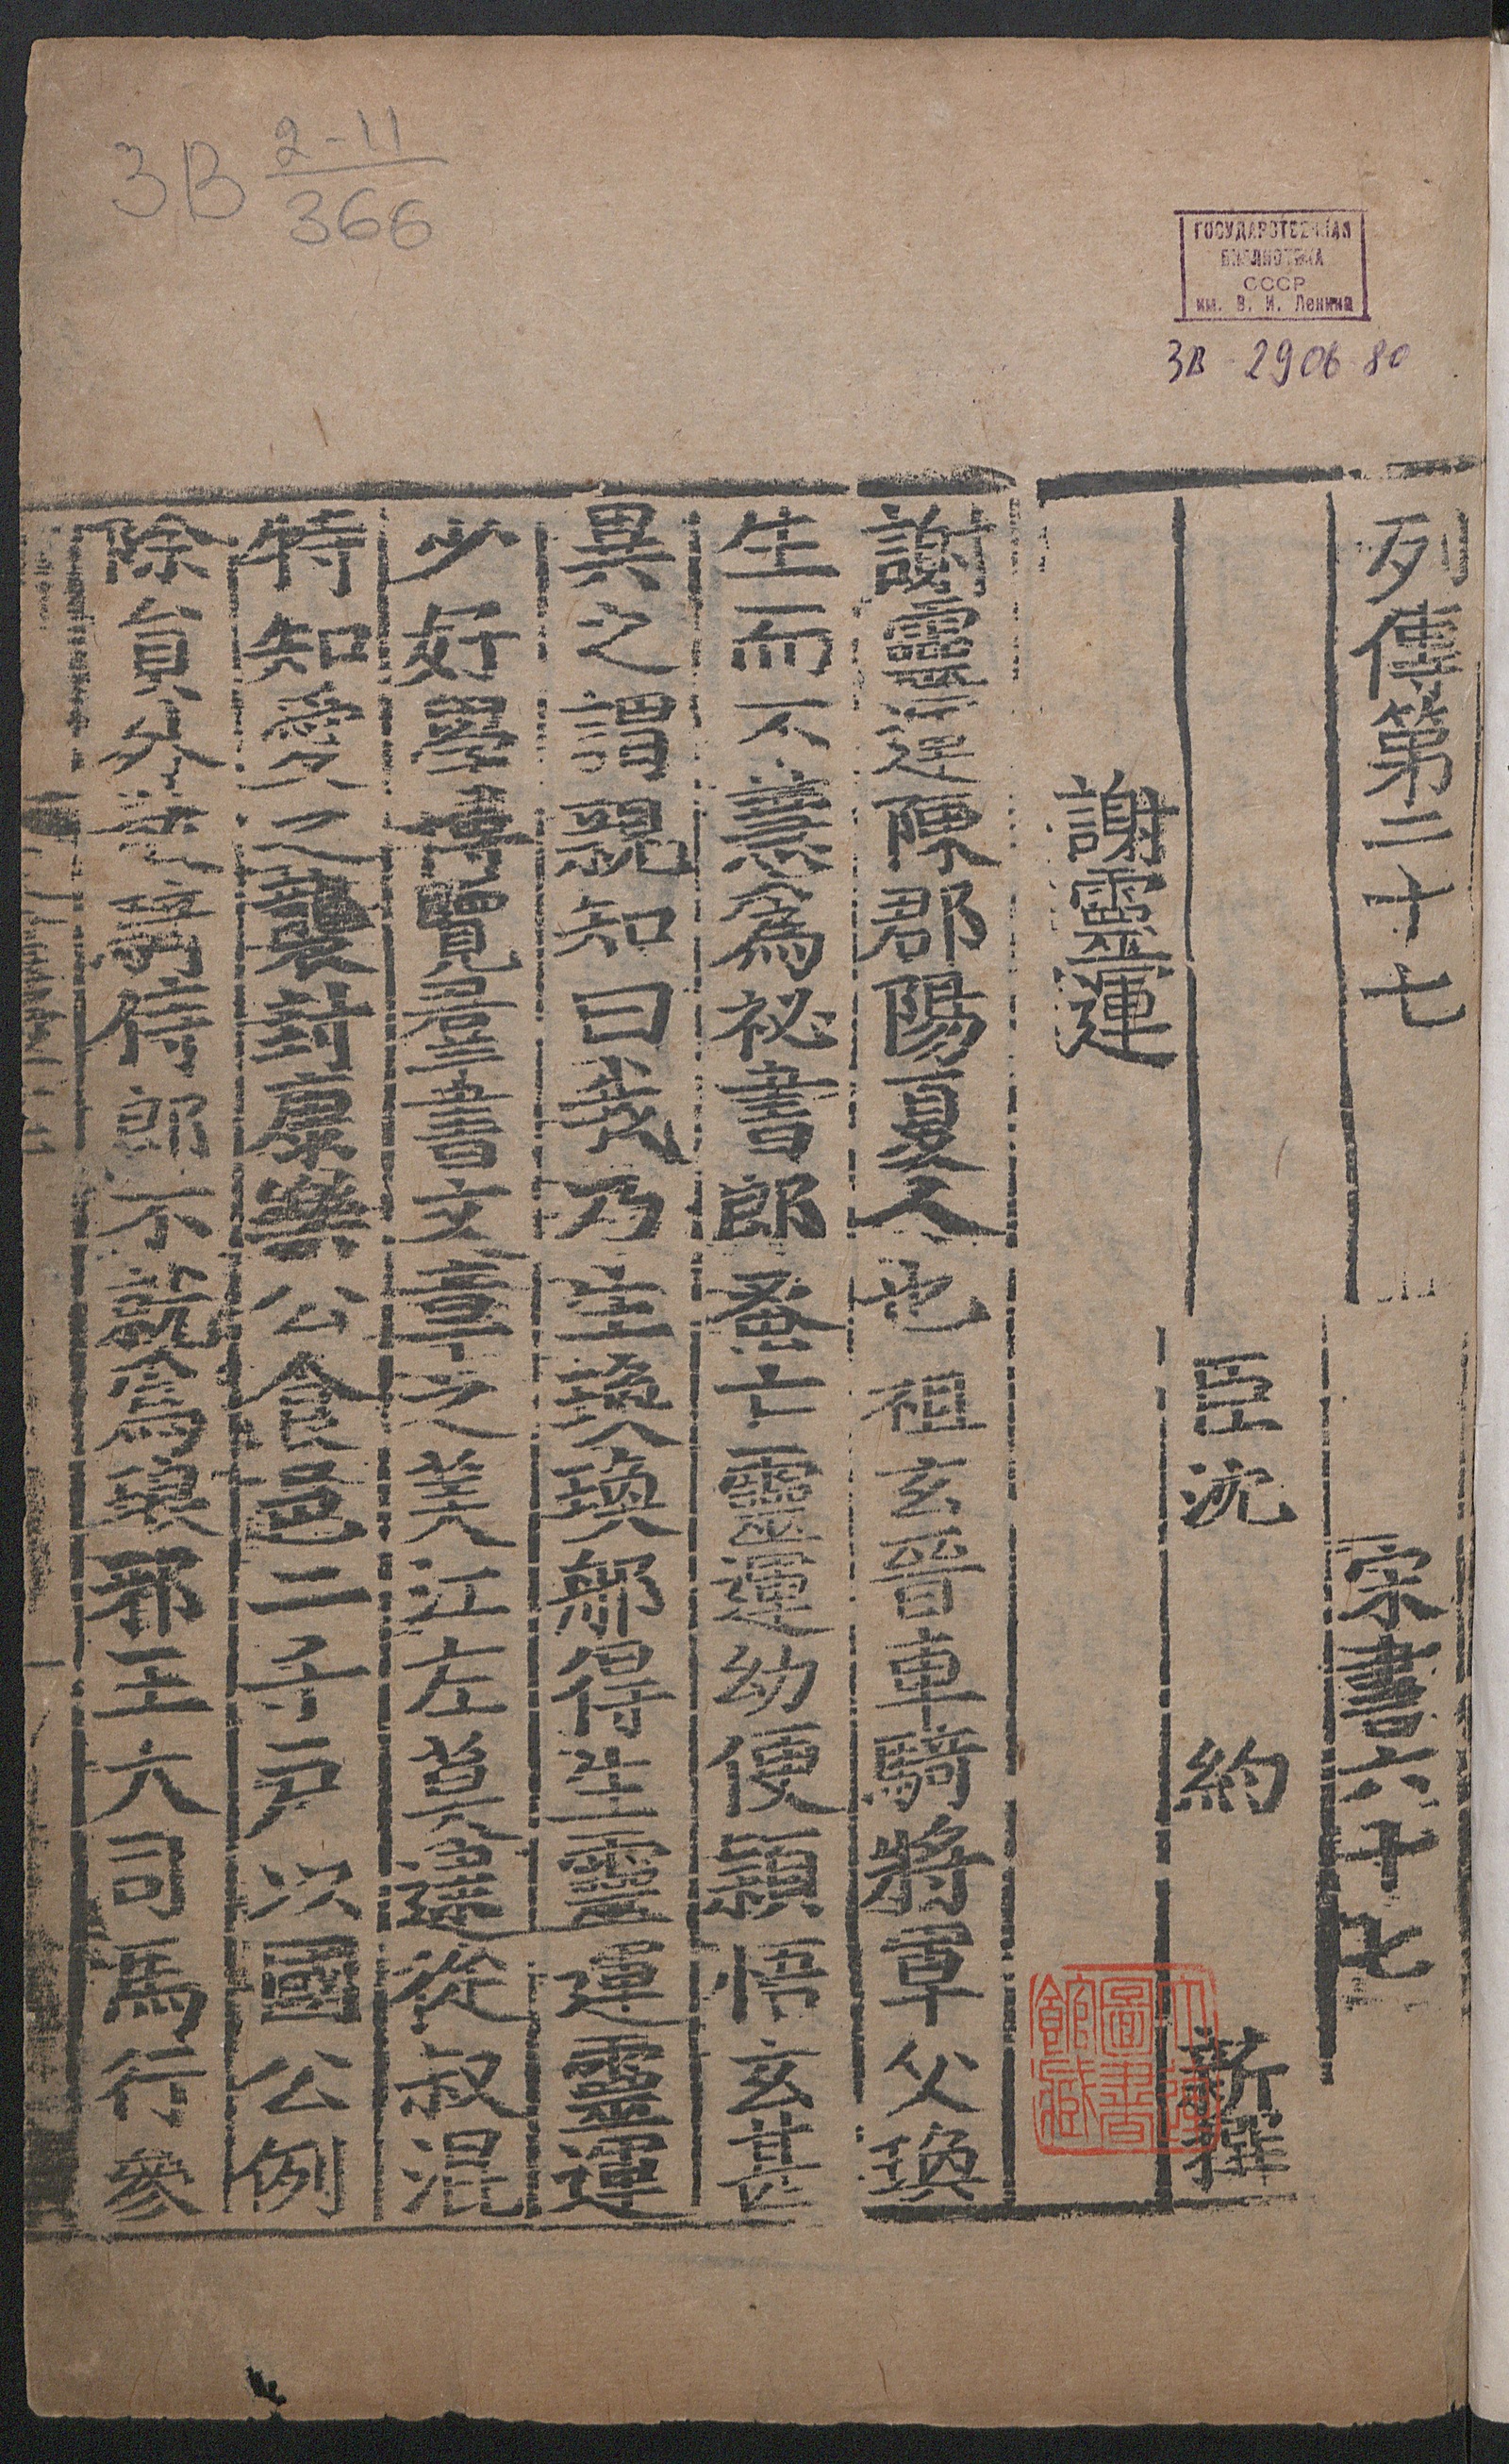 3B 2-11
366
ГОСУДАРСТВЕННАЯ
БИБЛИОТЕКА
СССР
им. В. И. Ленина
3В-2906 80
列傳第二十七 宋書六十七
臣沈 約 新撰
謝靈運
謝靈運陳郡陽夏人也祖玄晉車騎將軍父瑍
生而不慧爲祕書郎蚤亡靈運幼便頴悟玄甚
異之謂親知曰我乃生瑍瑍那得生靈運靈運
少好學博覽羣書文章之美江左莫逮從叔混
特知愛之襲封康樂公食邑二千戸以國公例
除負外散騎侍郎不就爲琅邪王大司馬行參
圖書
館藏